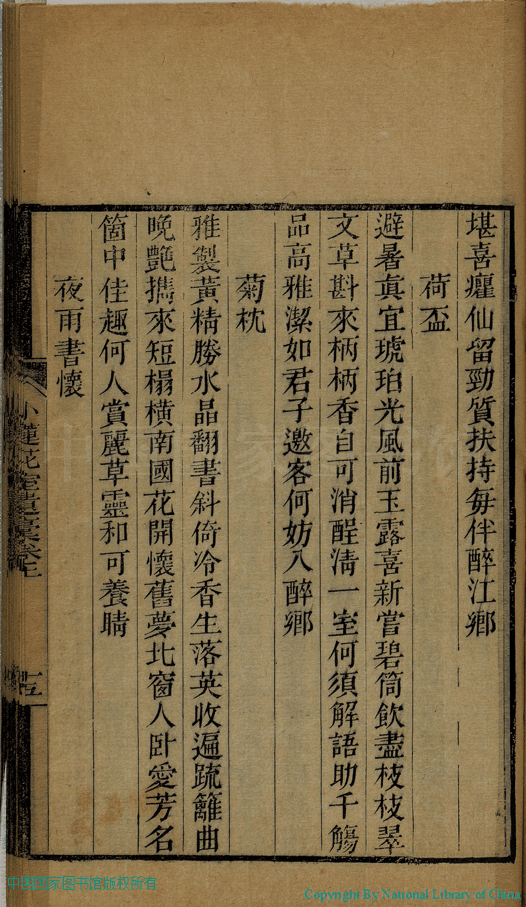 堪喜癯仙留勁質扶持每伴醉江鄉
荷盃
避暑真宜琥珀光風前玉露喜新嘗碧筒飲盡枝枝翠
文草斟來柄柄香自可消酲淸一室何須解語助千觴
品高雅潔如君子邀客何妨入醉鄉
菊枕
雅製黃精勝水晶翻書斜倚冷香生落英收遍疏籬曲
晚艷攜來短榻橫南國花開懷舊夢北窗人卧愛芳名
箇中佳趣何人賞麗草靈和可養睛
夜雨書懷
小蓮花室遺稾卷上
中国国家图书馆版权所有
Copyright By National Library of China.